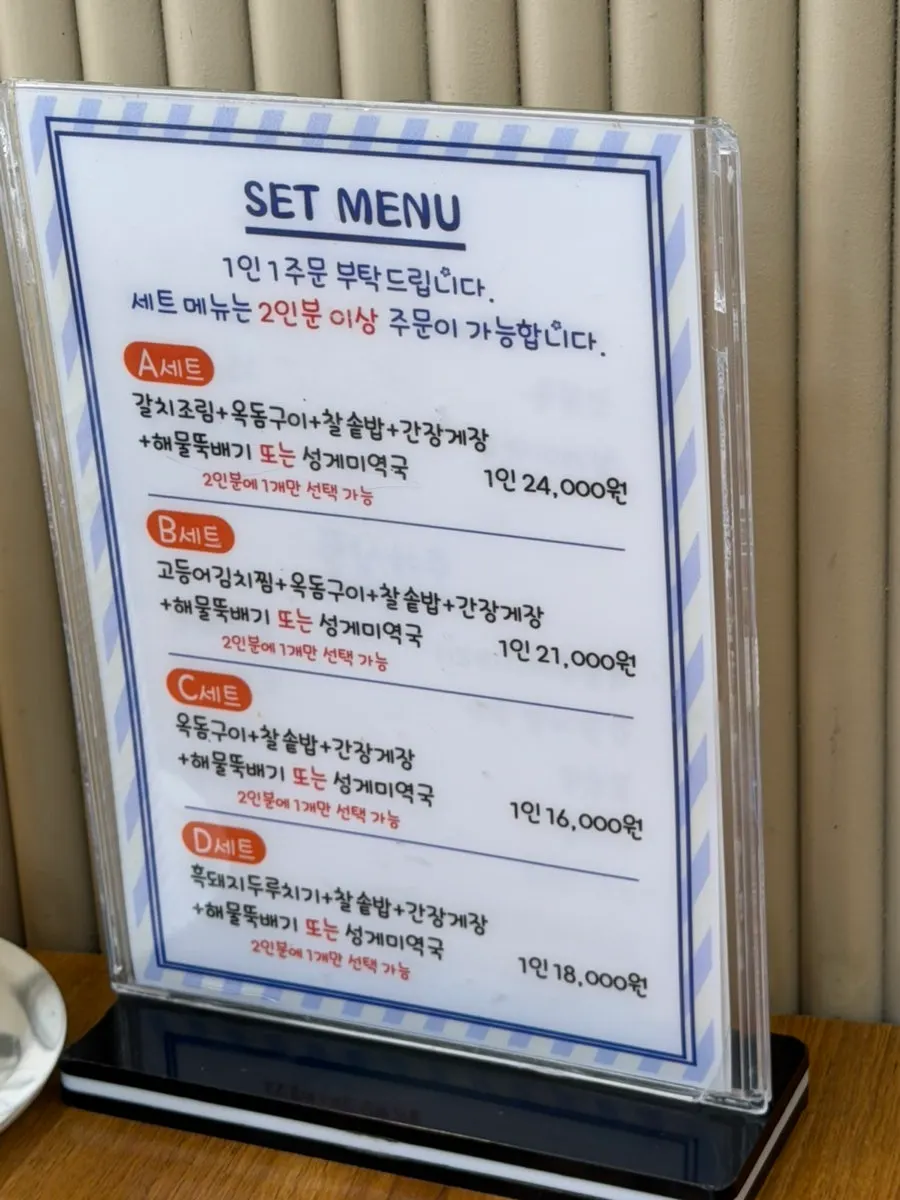 SET MENU
1인 1주문 부탁드립니다.
세트 메뉴는 2인분 이상 주문이 가능합니다.
A세트
갈치조림+옥돔구이+찰솥밥+간장게장
+해물뚝배기 또는 성게미역국
1인 24,000원
2인분에 1개만 선택 가능
B세트
고등어김치찜+옥돔구이+찰솥밥+간장게장
+해물뚝배기 또는 성게미역국
1인 21,000원
2인분에 1개만 선택 가능
C세트
옥돔구이+찰솥밥+간장게장
+해물뚝배기 또는 성게미역국
1인 16,000원
2인분에 1개만 선택 가능
D세트
흑돼지두루치기+찰솥밥+간장게장
+해물뚝배기 또는 성게미역국
1인 18,000원
2인분에 1개만 선택 가능